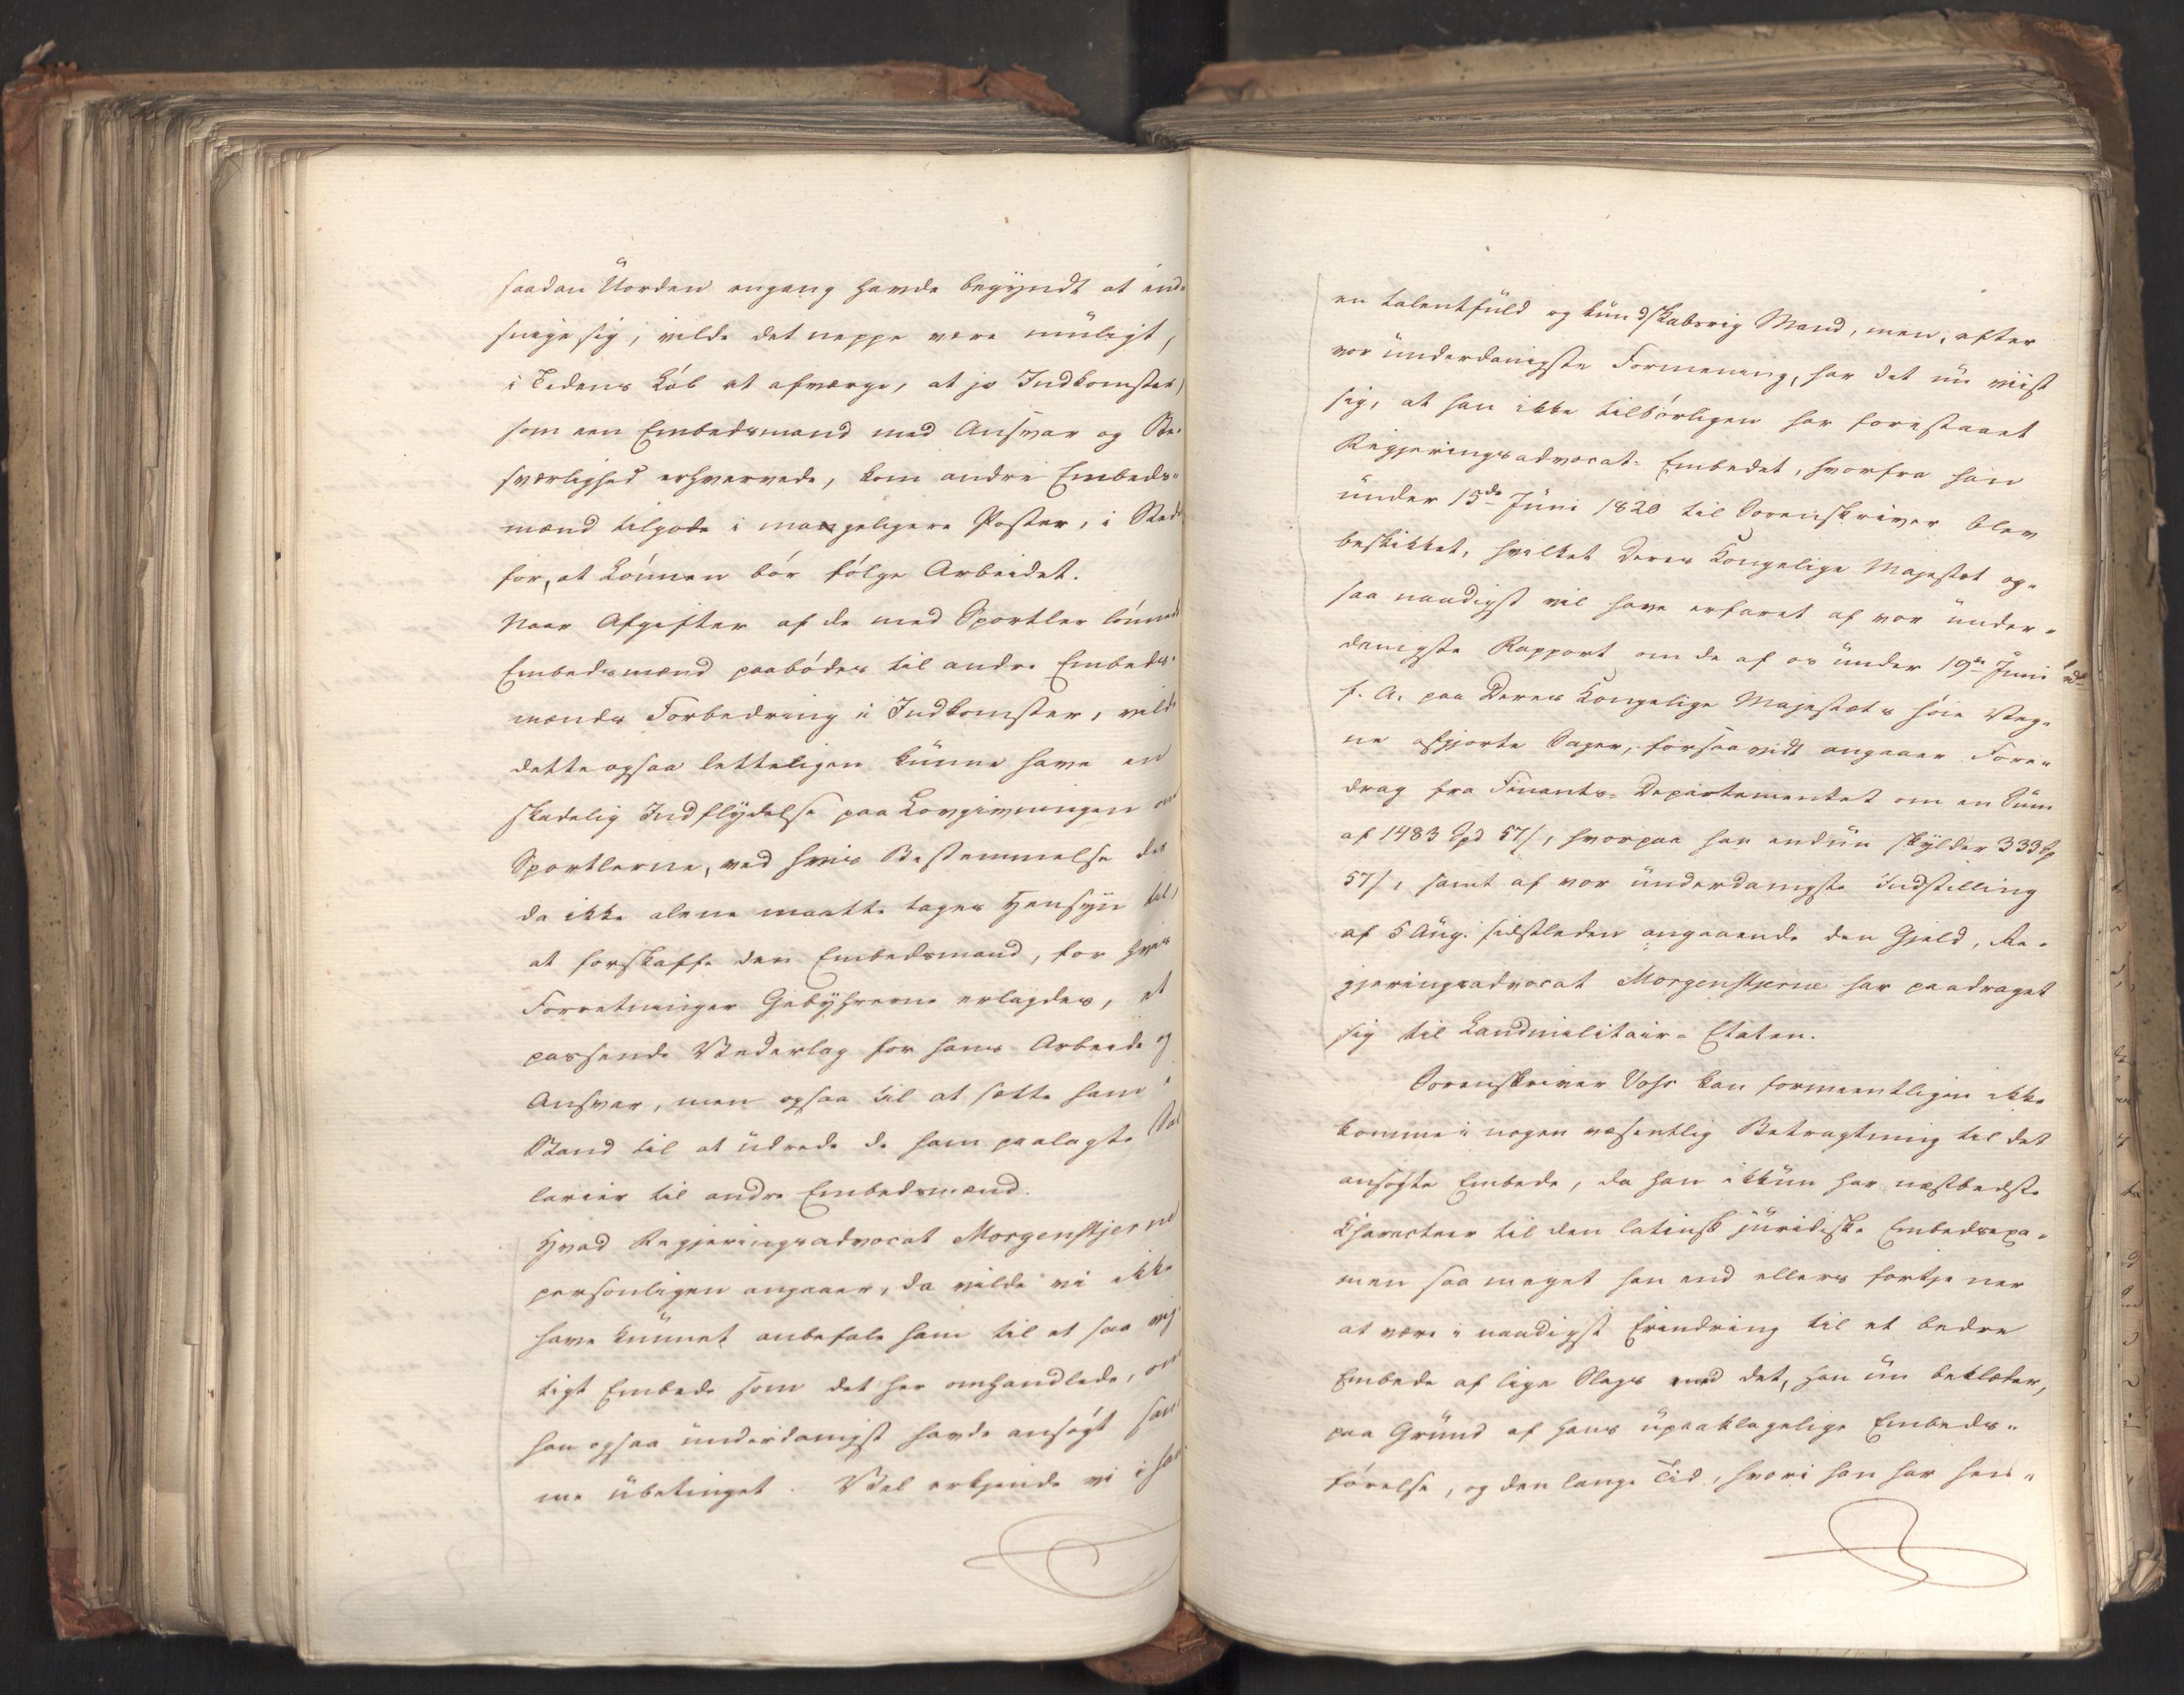 saadan Uorden engang havde begyndt at ind-
snige sig, vilde det neppe være muligt,
i Tidens Løb at afværge, at jo Indkomster,
som een Embedsmand med Ansvar og Be-
sværlighed erhvervede, kom andre Embeds-
mænd tilgode i mageligere Poster, i Sted-
for, at Lønnen bør følge Arbeidet.
Naar Afgifter af de med Sportler lønnede
Embedsmænd paabødes til andre Embeds-
mænds Forbedring i Indkomster, vilde
dette ogsaa letteligen kunne have en
skadelig Indflydelse paa Lovgivningen om
Sportlerne, ved hvis Bestemmelse der
da ikke alene maatte tages Hensyn til,
at forskaffe den Embedsmand, for hvis
Forretninger Gebyhrerne erlagdes, et
passende Vederlag for hans Arbeide og
Ansvar, men ogsaa til at sætte ham i
Stand til at udrede de ham paalagte Sal-
larier til andre Embedsmænd.
Hvad Regjeringsadvocat Morgenstjerne
personligen angaaer, da vilde vi ikke
have kunnet anbefale ham til et saa vig-
tigt Embede som det her omhandlede, om
han ogsaa underdanigst havde ansøgt sam-
me ubetinget. Vel erkjende vi i ham
en talentfuld og kundskabsrig Mand, men, efter
vor underdanigste Formening, har det nu viist
sig, at han ikke tilbørligen har forestaaet
Regjeringsadvocat-Embedet, hvorfra han
under 15de Juni 1820 til Sorenskriver blev
beskikket, hvilket Deres Kongelige Majestæt og-
saa naadigst vil have erfaret af vor under-
danigste Rapport om de af os under 19de Juni
f. A. paa Deres Kongelige Majestæts høie Veg-
ne afgjorte Sager, forsaavidt angaaer Fore-
drag fra Finants-Departementet om en Sum
af 1483 Spd 57/, hvorpaa han endnu skylder 333 Sp
57/, samt af vor underdanigste Indstilling
af 5 Aug. sidstleden angaaende den Gjeld, Re-
gjeringsadvocat Morgenstjerne har paadraget
sig til Landmilitair-Etaten.
Sorenskriver Vohs kan formeentligen ikke
komme i nogen væsentlig Betragtning til det
ansøgte Embede, da han ikkun har næstbedste
Characteer til den latinsk juridiske Embedsexa-
men saa meget han end ellers fortjener
at være i naadigst Erindring til et bedre
Embede af lige Slags med det, han nu beklæder,
paa Grund af hans upaaklagelige Embeds-
førelse, og den lange Tid, hvori han har hen-